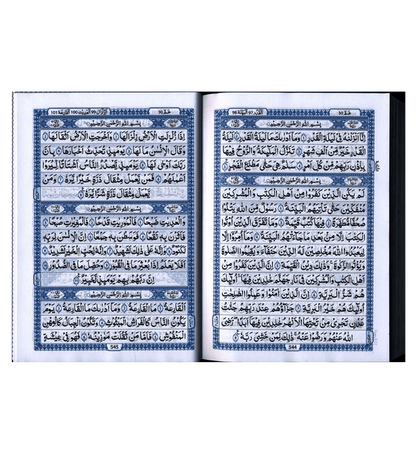 بسم الله الرحمن الرحيم
انا انزلنه في ليلة القدر وما ادرىك ما ليلة القدر ليلة
القدر خير من الف شهر تنزل الملىكة والروح فيها
باذن ربهم من كل امر سلم هي حتى مطلع الفجر
بسم الله الرحمن الرحيم
لم يكن الذين كفروا من اهل الكتب والمشركين
منفكين حتى تاتيهم البينة رسول من الله يتلوا
صحفا مطهرة فيها كتب قيمة وما تفرق الذين اوتوا
الكتب الا من بعد ما جاءتهم البينة وما امروا الا
ليعبدوا الله مخلصين له الدين حنفاء ويقيموا الصلوة
ويؤتوا الزكوة وذلك دين القيمة ان الذين كفروا من
اهل الكتب والمشركين في نار جهنم خلدين فيها اولىك
هم شر البرية ان الذين امنوا وعملوا الصلحت
اولىك هم خير البرية جزاؤهم عند ربهم جنت
عدن تجري من تحتها الانهر خلدين فيها ابدا رضي
الله عنهم ورضوا عنه ذلك لمن خشي ربه
544
بسم الله الرحمن الرحيم
اذا زلزلت الارض زلزالها واخرجت الارض اثقالها
وقال الانسان ما لها يومىذ تحدث اخبارها بان
ربك اوحى لها يومىذ يصدر الناس اشتاتا ليروا
اعمالهم فمن يعمل مثقال ذرة خيرا يره ومن
يعمل مثقال ذرة شرا يره
بسم الله الرحمن الرحيم
والعديت ضبحا فالموريت قدحا فالمغيرت صبحا
فاثرن به نقعا فوسطن به جمعا ان الانسان لربه
لكنود وانه على ذلك لشهيد وانه لحب الخير لشديد
افلا يعلم اذا بعثر ما في القبور وحصل ما في الصدور
ان ربهم بهم يومىذ لخبير
بسم الله الرحمن الرحيم
القارعة ما القارعة وما ادرىك ما القارعة يوم
يكون الناس كالفراش المبثوث وتكون الجبال كالعهن
المنفوش فاما من ثقلت موازينه فهو في عيشة
545